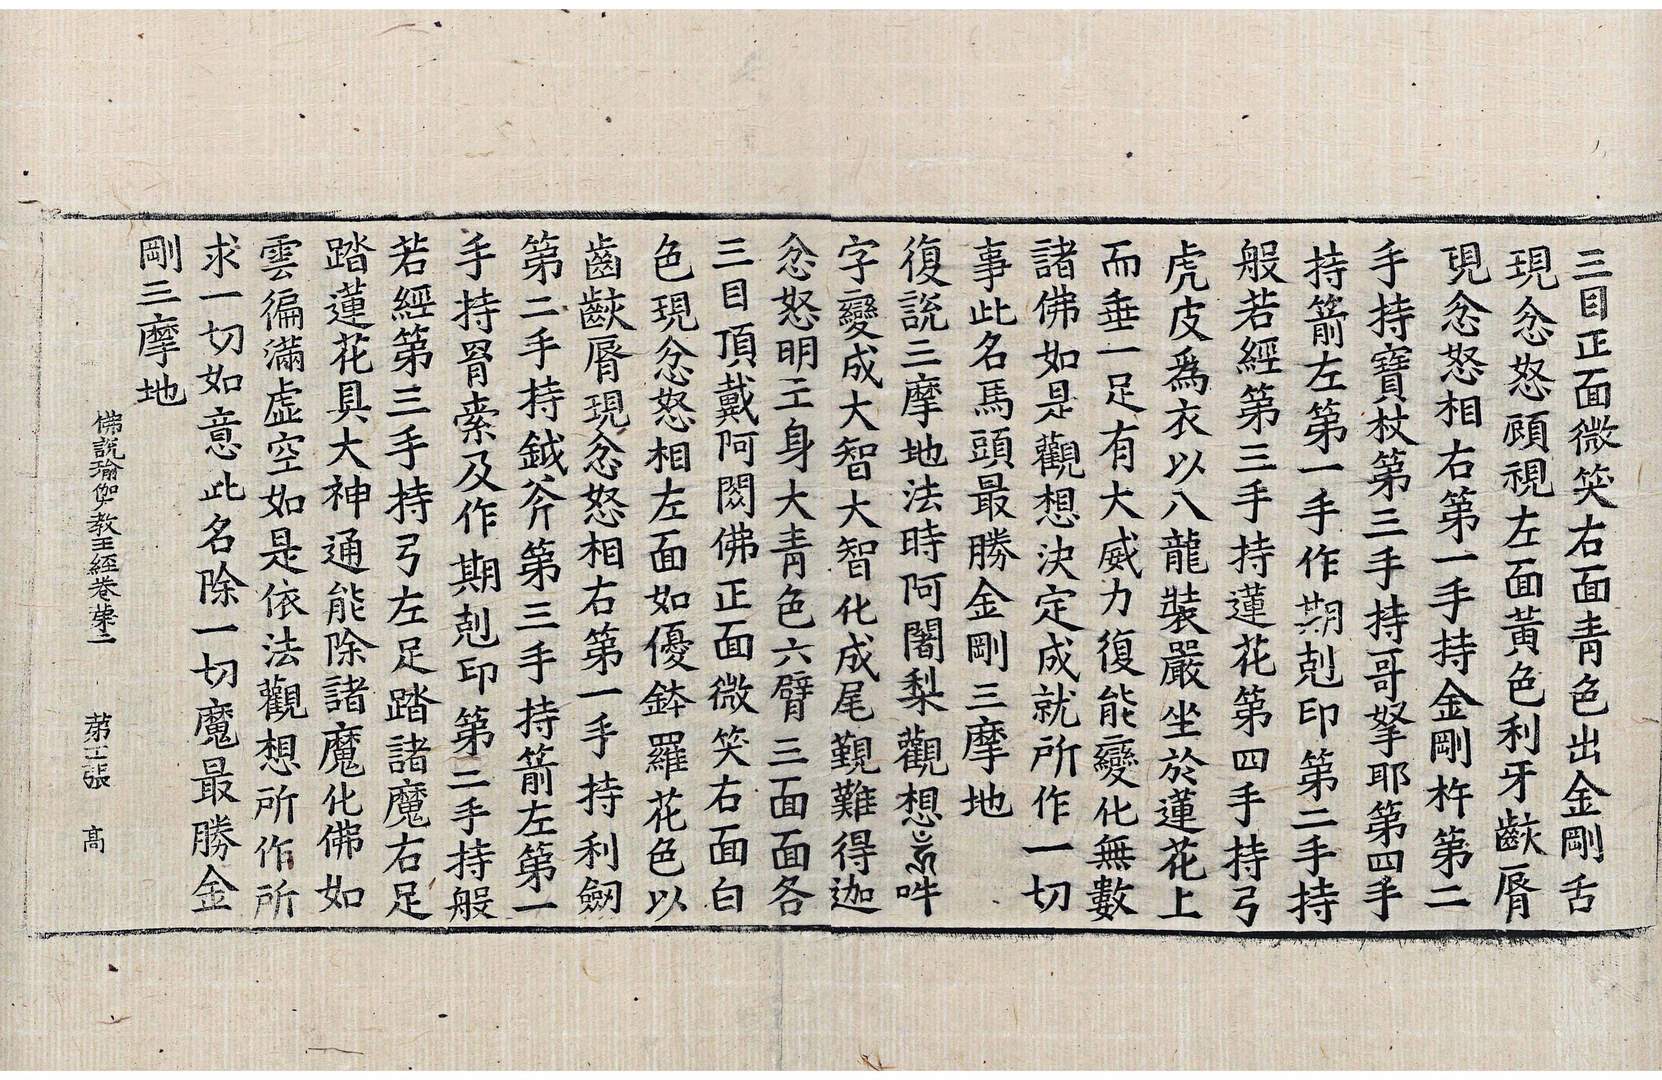 三目正面微笑右面青色出金剛舌
現忿怒顧視左面黃色利牙齩脣
現忿怒相右第一手持金剛杵第二
手持寶杖第三手持哥拏耶第四手
持箭左第一手作期剋印第二手持
般若經第三手持蓮花第四手持弓
虎皮爲衣以八龍裝嚴坐於蓮花上
而垂一足有大威力復能變化無數
諸佛如是觀想決定成就所作一切
事此名馬頭最勝金剛三摩地
復說三摩地法時阿闍梨觀想吽
字變成大智大智化成尾覲難得迦
忿怒明王身大青色六臂三面面各
三目頂戴阿閦佛正面微笑右面白
色現忿怒相左面如優鉢羅花色以
齒齩脣現忿怒相右第一手持利劒
第二手持鉞斧第三手持箭左第一
手持罥索及作期剋印第二手持般
若經第三手持弓左足踏諸魔右足
踏蓮花具大神通能除諸魔化佛如
雲徧滿虛空如是依法觀想所作所
求一切如意此名除一切魔最勝金
剛三摩地
佛說瑜伽教王經卷第二 第 張 高